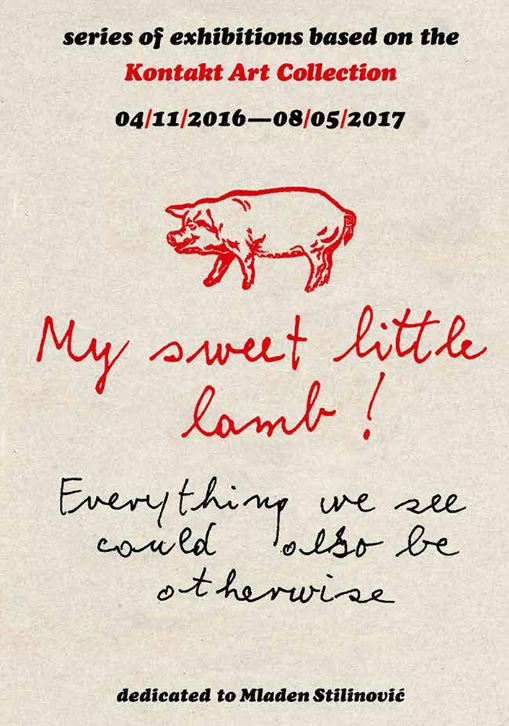 series of exhibitions based on the
Kontakt Art Collection
04/11/2016—08/05/2017
My sweet little
lamb!
Everything we see
could also be
otherwise
dedicated to Mladen Stilinović